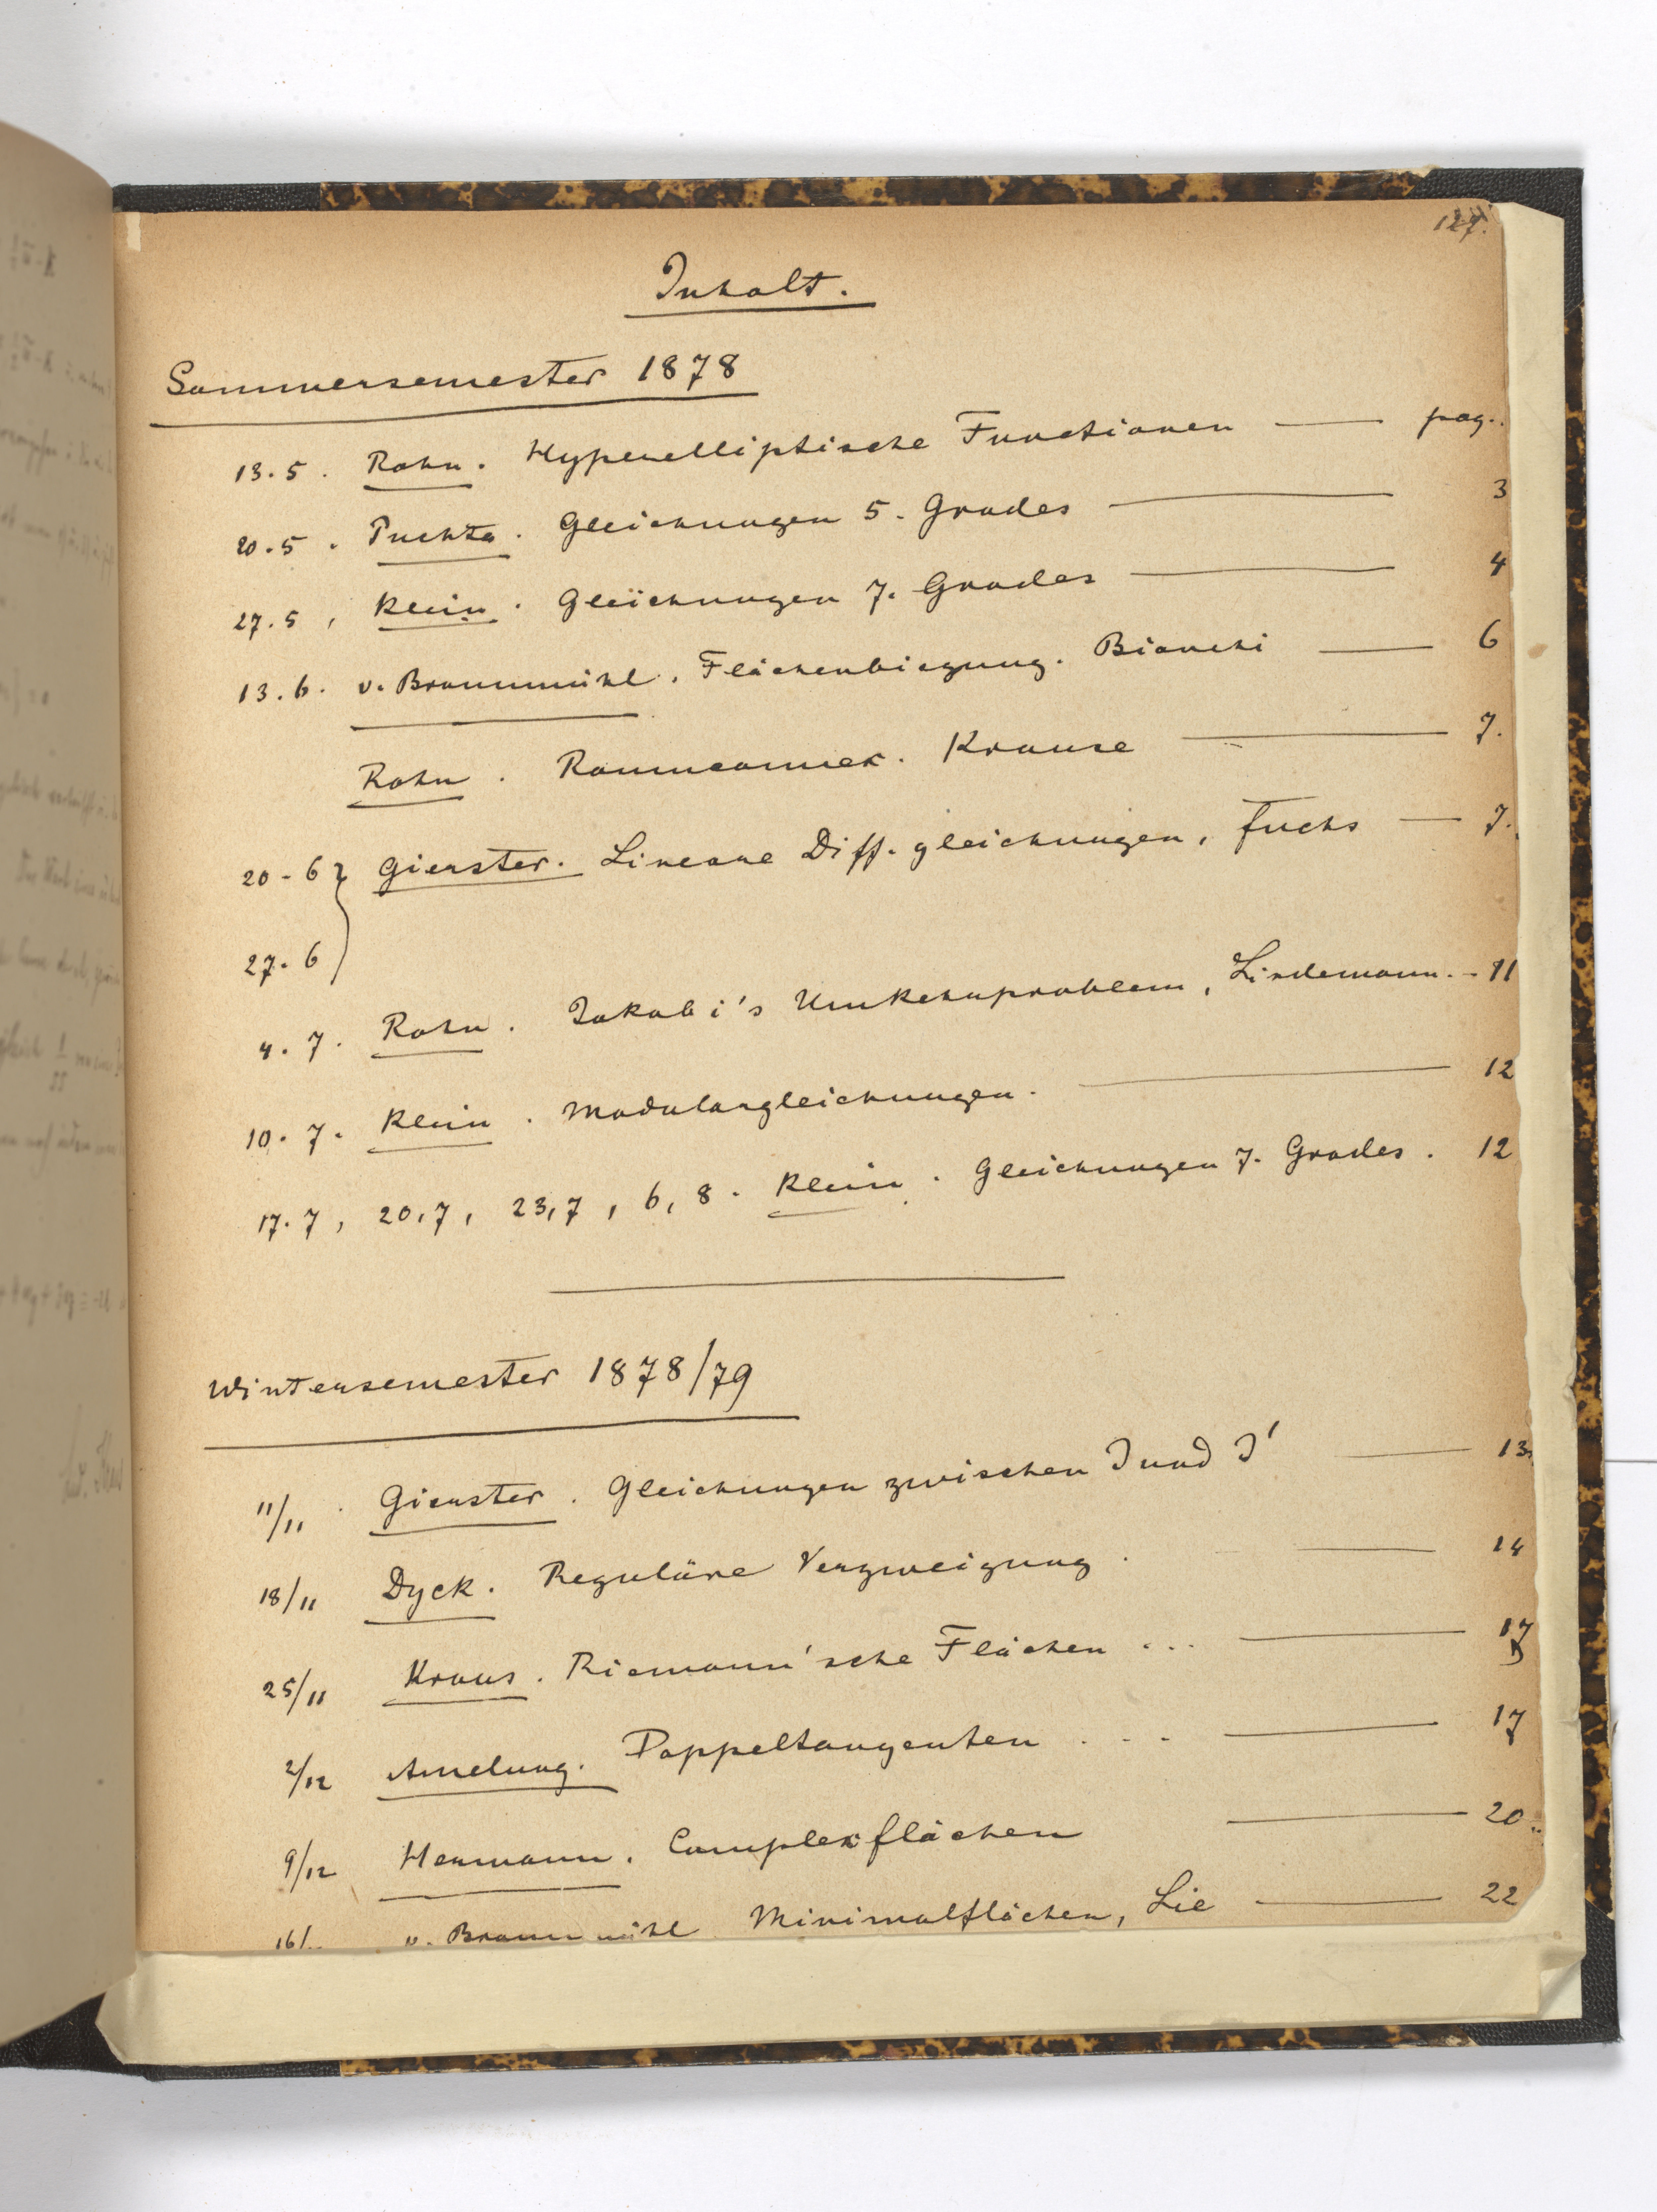 Inhalt.
Sommersemester 1878
13.5. Rohn. Hyperelliptische Functionen — pag.
20.5. Puchta. Gleichungen 5. Grades — 3
27.5, Klein. Gleichungen 7. Grades — 4
13.6. v. Braunmühl. Flächenbiegung. Bianchi — 6
Rohn. Raumcomplex. Krause — 7.
20-6 } Gierster. Lineare Diff. gleichungen, Fuchs — 7.
27.6
4.7. Rohn. Jakobi's Umkehrproblem, Lindemann. - 11
10.7. Klein. Modulargleichungen. — 12
17.7, 20,7, 23,7, 6,8. Klein. Gleichungen 7. Grades. 12
Wintersemester 1878/79
11/11. Gierster. Gleichungen zwischen J und J' — 13
18/11 Dyck. Reguläre Verzweigung. — 14
25/11 Kraus. Riemann'sche Flächen ... — 17
2/12 Amelung. Doppeltangenten ... — 17
9/12 Hermann. Complexflächen — 20
v. Braunmühl Minimalflächen, Lie — 22